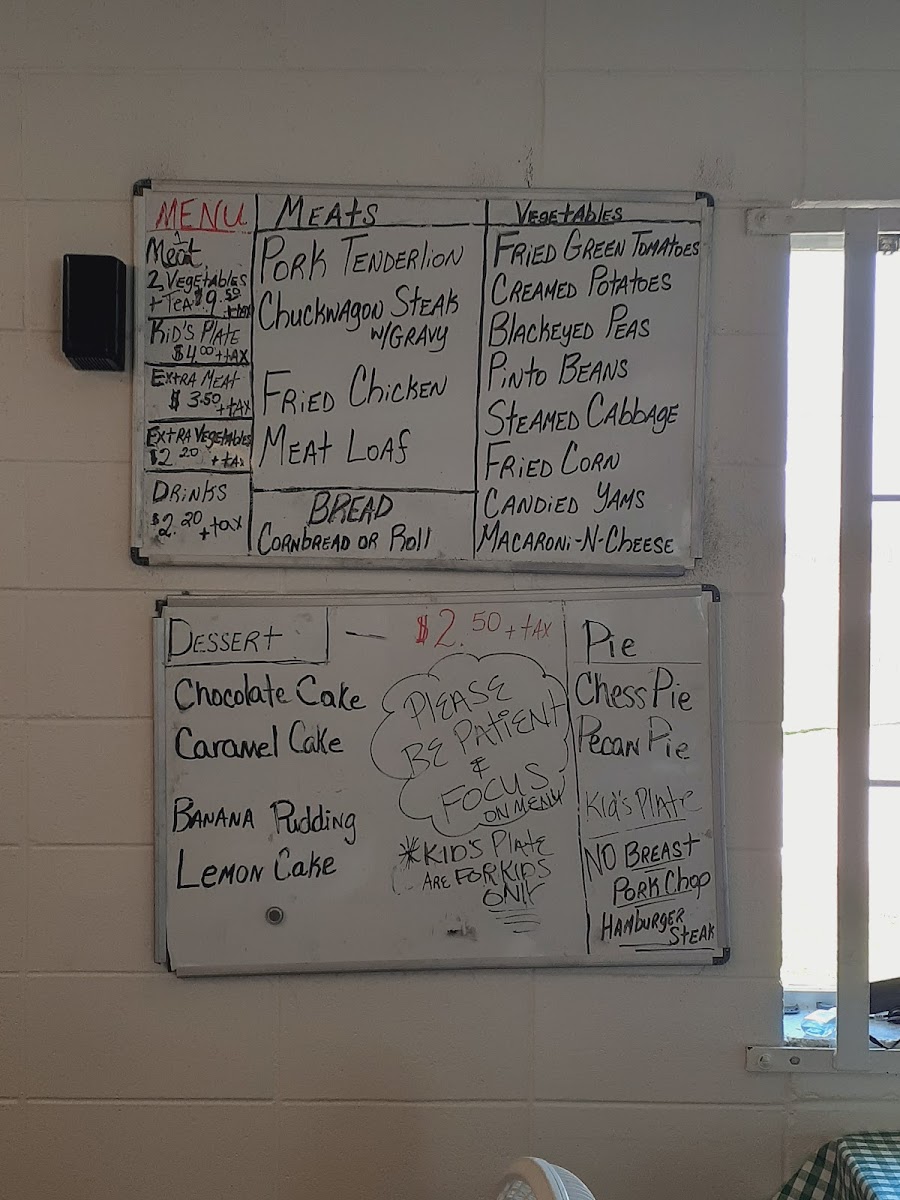 MENU
1
Meat
2 VEGETABLES
+ TEA $9.50
+tax
KID'S PLATE
$4.00 +tAX
EXTRA MEAT
$3.50 +tAX
EXTRA VEGETABLES
$2.20 +tAX
DRINKS
$2.20 +tax
MEAtS
PORK TENDERLION
CHUCKWAGON STEAK
W/GRAVY
FRIED CHICKEN
MEAt LOAf
BREAD
CORNBREAD OR Roll
VEGETABLES
FRIED GREEN TOMATOES
CREAMED POTATOES
BLACKEYED PEAS
PINTO BEANS
STEAMED CABBAGE
FRIED CORN
CANDIED YAMS
MACARONI-N-CHEESE
DESSERT — $2.50 + tAX
Chocolate Cake
Caramel Cake
BANANA Pudding
LEMON Cake
PLEASE
BE PATIENT
&
FOCUS
ON MENU
*KID'S PLATE
ARE FOR KIDS
ONLY
Pie
Chess Pie
Pecan Pie
Kid's Plate
NO BREAST
PORK Chop
HAMBURGER
STEAK